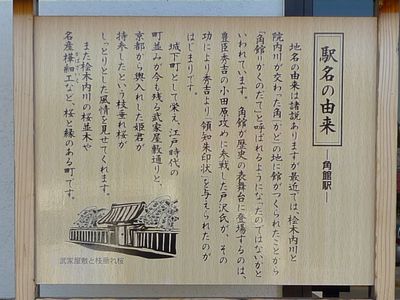 駅名の由来
―角館駅―
地名の由来は諸説ありますが最近では、桧木内川と
院内川が交わった角（かど）の地に館がつくられたことから
「角館＝かくのだて」と呼ばれるようになったのではないかと
いわれています。角館が歴史の表舞台に登場するのは、
豊臣秀吉の小田原攻めに参戦した戸沢氏が、その
功により秀吉より「領知朱印状」を与えられたのが
はじまりです。
城下町として栄え、江戸時代の
町並みが今も残る武家屋敷通りと、
京都から輿入れした姫君が
持参したという枝垂れ桜が
しっとりとした風情を見せてくれます。
また桧木内川の桜並木や
名産樺細工など、桜と縁のある町です。
武家屋敷と枝垂れ桜